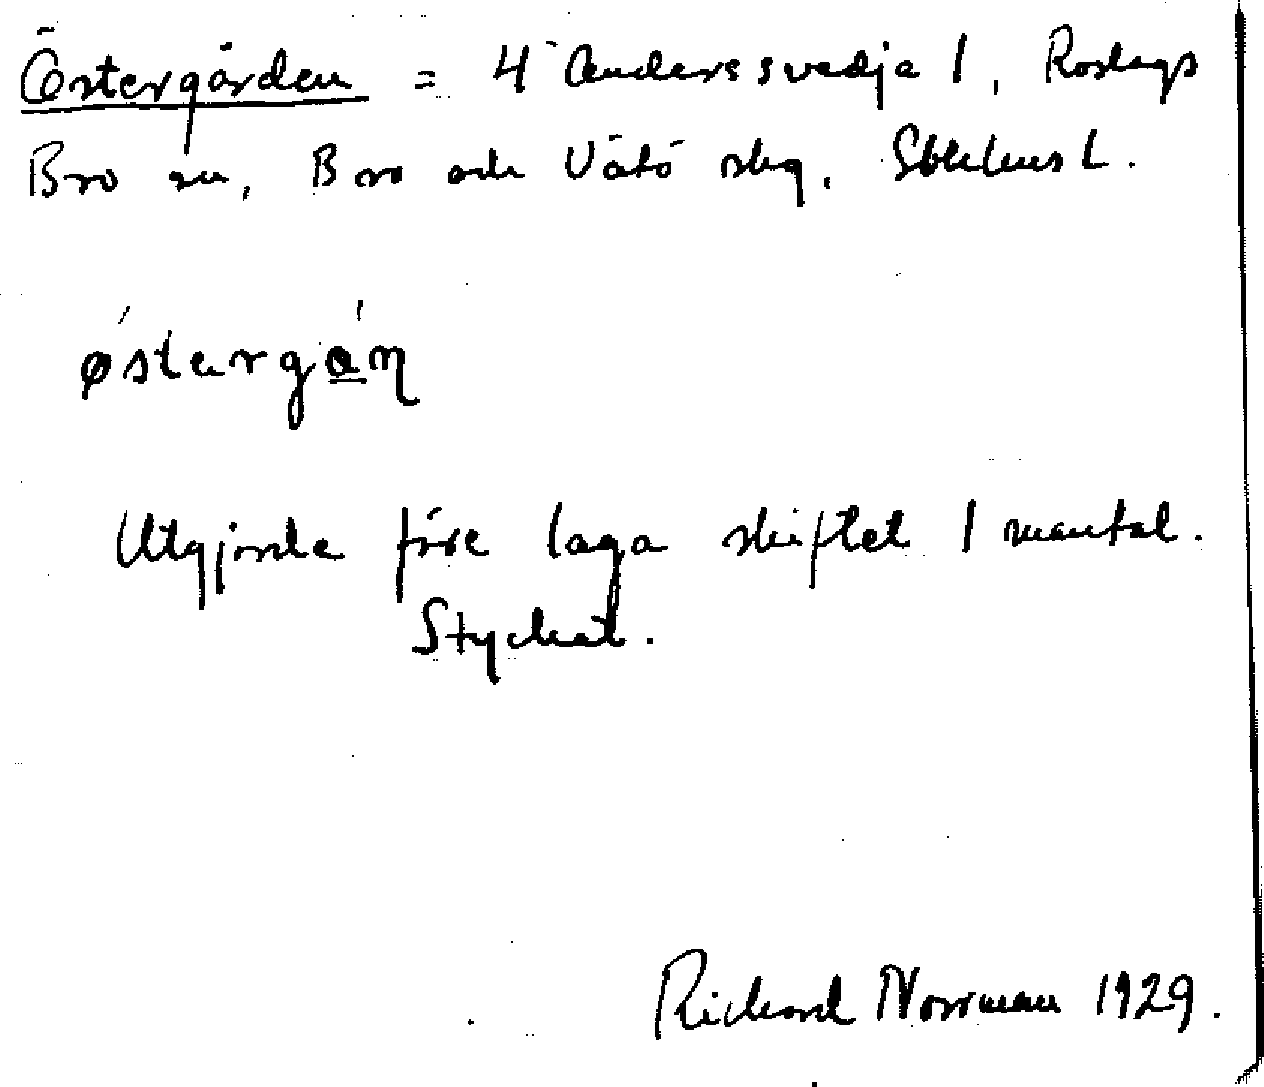 Östergården = 4 Anderssvedja 1, Roslags
Bro sn, Bro och Vätö skg, Sthlms L.
østərgán
Utgjorde före laga skiftet 1 mantal.
Styckat.
Richard Norrman 1929.